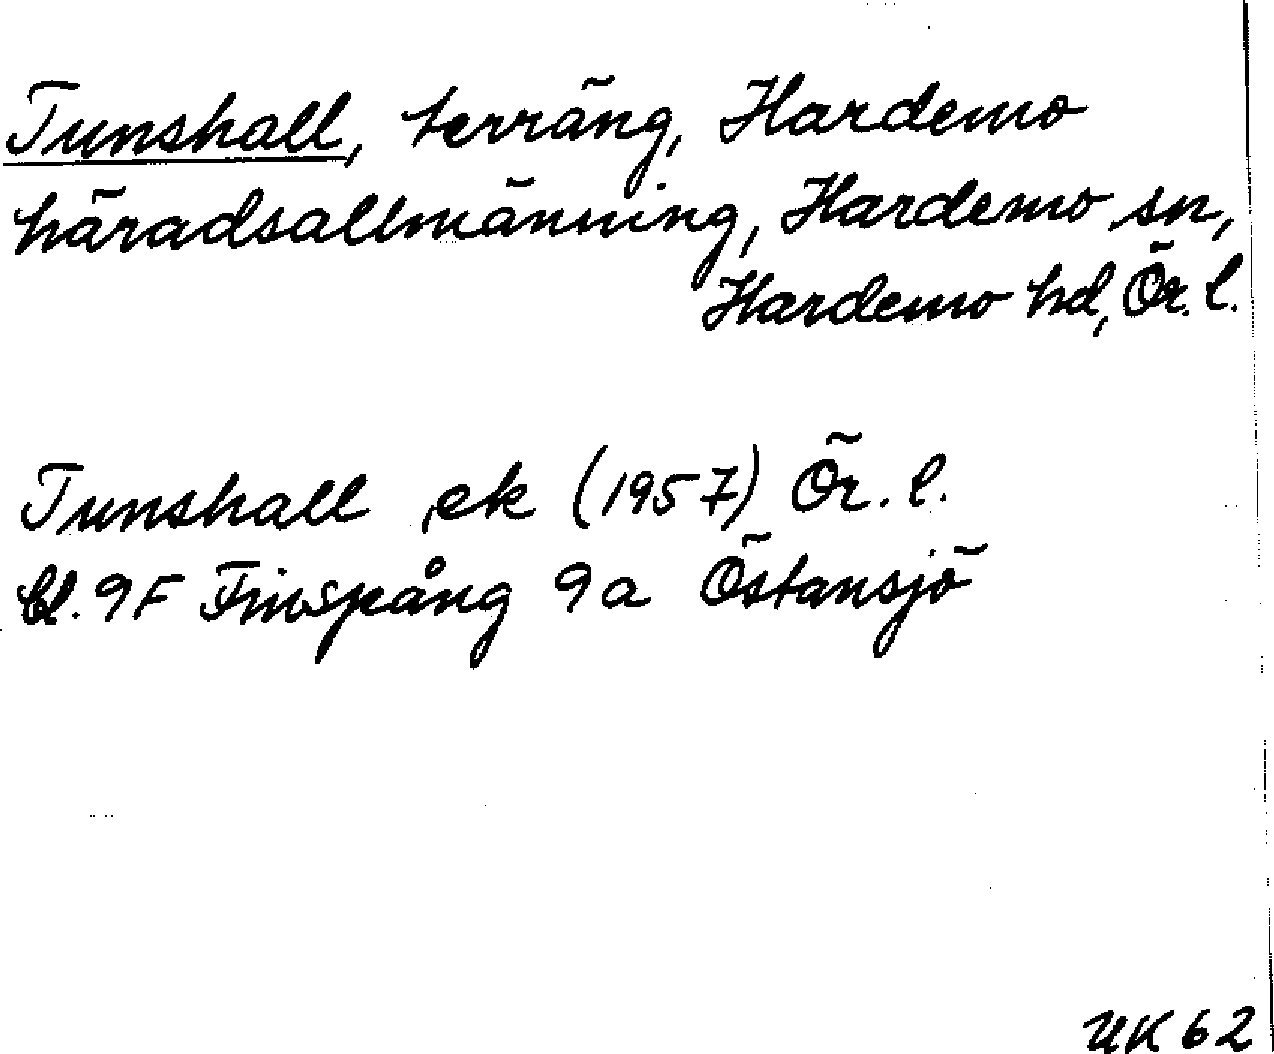 Tunshall, terräng, Hardemo
häradsallmänning, Hardemo sn,
Hardemo hd, Ör. l.
Tunshall, ek (1957) Ör. l.
bl. 9F Finspång 9a Östansjö
UK 62